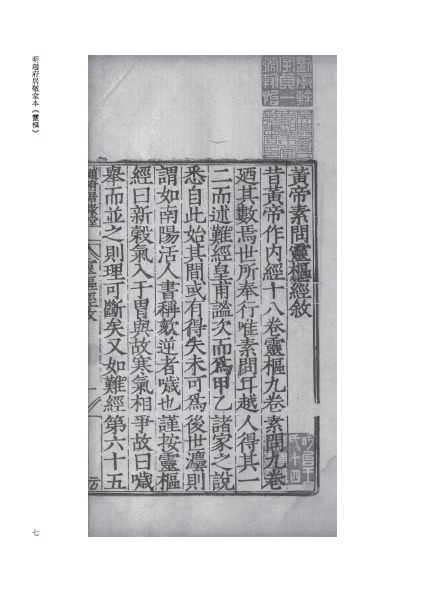 明趙府居敬堂本《靈樞》
黃帝素問靈樞經敘
昔黃帝作內經十八卷靈樞九卷素問九卷
廼其數焉世所奉行唯素問耳越人得其一
二而述難經皇甫謐次而爲甲乙諸家之說
悉自此始其間或有得失未可爲後世法則
謂如南陽活人書稱欬逆者噦也謹按靈樞
經曰新穀氣入于胃與故寒氣相爭故曰噦
舉而並之則理可斷矣又如難經第六十五
趙府居敬堂
靈樞經敘
七